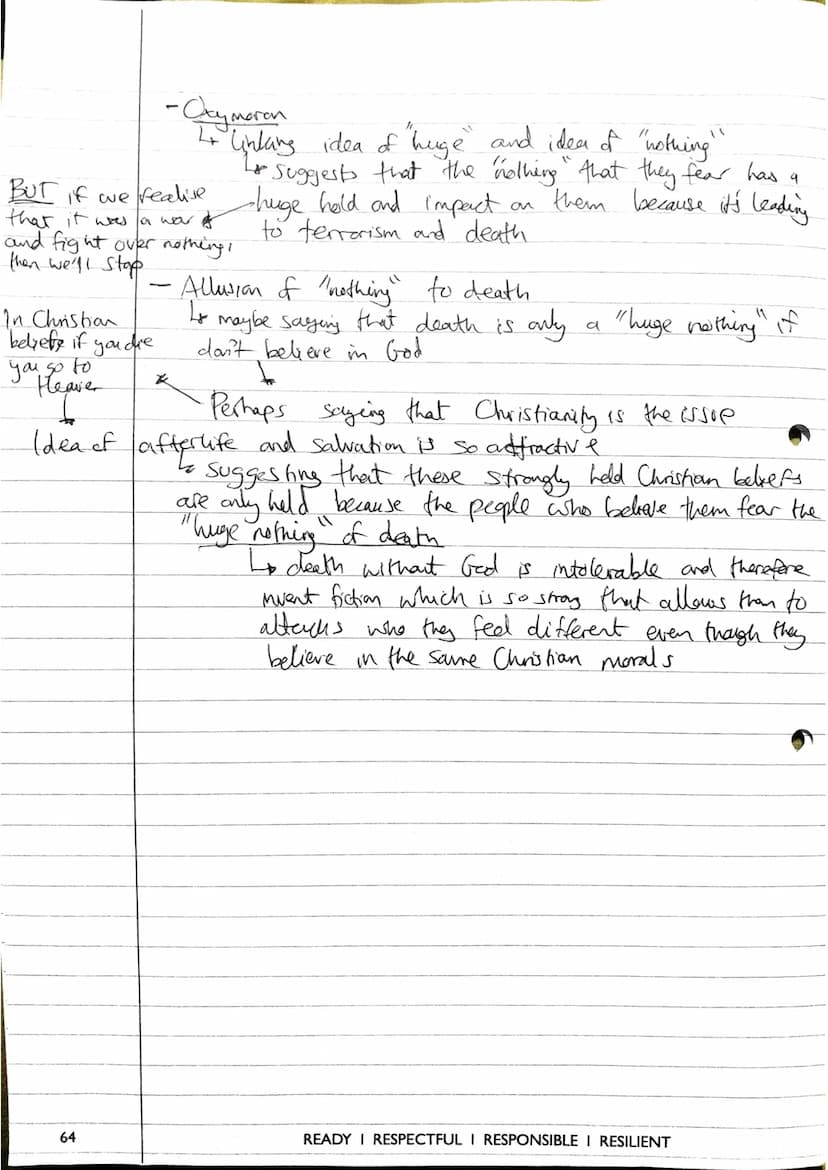 - Oxymoron
↳ Linking idea of "huge" and idea of "nothing"
↳ suggests that the "nothing" that they fear has a
huge hold and impact on them because it's leading
to terrorism and death
BUT if we realise
that it was a war
and fight over nothing,
then we'll stop
- Allusion of "nothing" to death
↳ maybe saying that death is only a "huge nothing" if
don't believe in God
In Christian
beliefs if you die
you go to
Heaven
↓
Perhaps saying that Christianity is the issue
Idea of afterlife and salvation is so attractive
↳ suggesting that these strongly held Christian beliefs
are only held because the people who believe them fear the
"huge nothing" of death
↳ death without God is intolerable and therefore
invent fiction which is so strong that allows them to
attacks who they feel different even though they
believe in the same Christian morals
64
READY I RESPECTFUL I RESPONSIBLE I RESILIENT